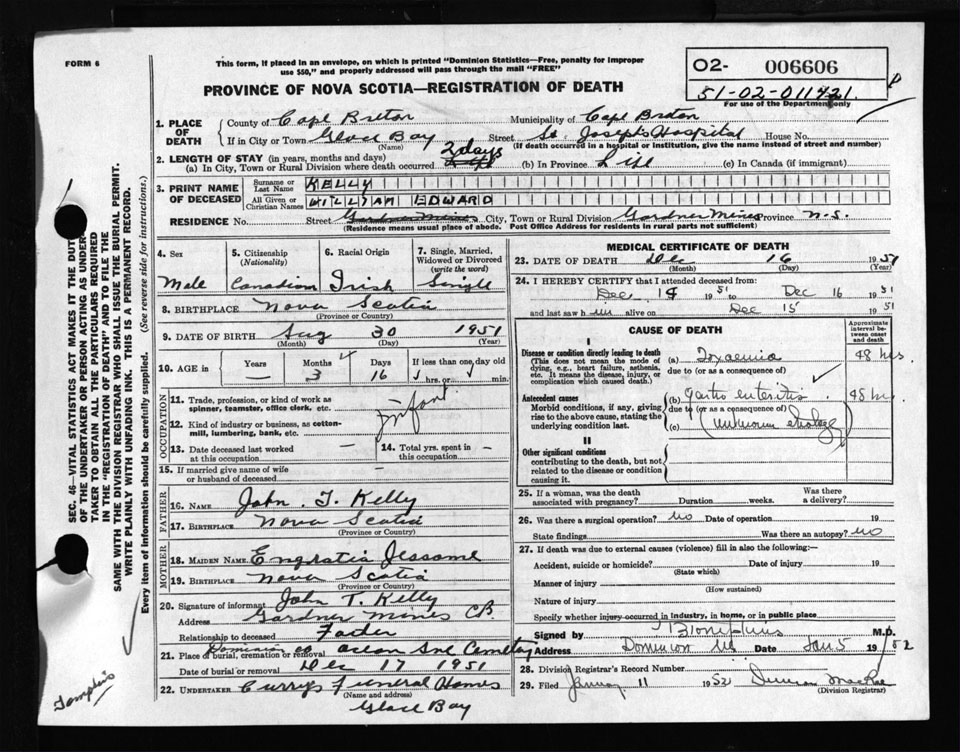 FORM 6
This form, if placed in an envelope, on which is printed "Dominion Statistics—Free, penalty for improper
use $50," and properly addressed will pass through the mail "FREE"
O2- 006606
51-02-011421.
For use of the Department only
PROVINCE OF NOVA SCOTIA—REGISTRATION OF DEATH
1. PLACE OF DEATH
County of Cape Breton Municipality of Cape Breton
If in City or Town Glace Bay Street St. Joseph's Hospital House No.
(Name) (If death occurred in a hospital or institution, give the name instead of street and number)
2. LENGTH OF STAY (in years, months and days)
(a) In City, Town or Rural Division where death occurred 2 days (b) In Province Life (c) In Canada (if immigrant)
3. PRINT NAME OF DECEASED
Surname or Last Name KELLY
All Given or Christian Names WILLIAM EDWARD
RESIDENCE No. Street Gardner Mines City, Town or Rural Division Gardner Mines Province N.S.
(Residence means usual place of abode. Post Office Address for residents in rural parts not sufficient)
4. Sex Male
5. Citizenship (Nationality) Canadian
6. Racial Origin Irish
7. Single, Married, Widowed or Divorced (write the word) Single
8. BIRTHPLACE Nova Scotia
(Province or Country)
9. DATE OF BIRTH Aug 30 1951
(Month) (Day) (Year)
10. AGE in Years — Months 3 Days 16 If less than one day old hrs. or min.
4
OCCUPATION
11. Trade, profession, or kind of work as
spinner, teamster, office clerk, etc. infant
12. Kind of industry or business, as cotton-
mill, lumbering, bank, etc.
13. Date deceased last worked
at this occupation —
14. Total yrs. spent in
this occupation —
15. If married give name of wife
or husband of deceased
FATHER
16. NAME John T. Kelly
17. BIRTHPLACE Nova Scotia
(Province or Country)
MOTHER
18. MAIDEN NAME Engratis Jessome
19. BIRTHPLACE Nova Scotia
(Province or Country)
20. Signature of informant John T. Kelly
Address Gardner Mines CB.
Relationship to deceased Fader
21. Place of burial, cremation or removal Dominion CB Ocean Cemetery
Date of burial or removal Dec 17 1951
22. UNDERTAKER Curry's Funeral Homes
(Name and address)
Glace Bay
MEDICAL CERTIFICATE OF DEATH
23. DATE OF DEATH Dec 16 1951
(Month) (Day) (Year)
24. I HEREBY CERTIFY that I attended deceased from:
Dec 14 1951 to Dec 16 1951
and last saw h im alive on Dec 15 1951
CAUSE OF DEATH
Approximate interval between onset and death
I
Disease or condition directly leading to death (a) Toxaemia 48 hrs.
(This does not mean the mode of
dying, e.g., heart failure, asthenia,
etc. It means the disease, injury, or
complication which caused death.)
due to (or as a consequence of)
Antecedent causes (b) Gastro enteritis 48 hrs
Morbid conditions, if any, giving
rise to the above cause, stating the
underlying condition last.
due to (or as a consequence of)
(c) (unknown etiology)
II
Other significant conditions
contributing to the death, but not
related to the disease or condition
causing it.
25. If a woman, was the death
associated with pregnancy? Duration weeks. Was there
a delivery?
26. Was there a surgical operation? No Date of operation 19
State findings Was there an autopsy? No
27. If death was due to external causes (violence) fill in also the following:—
Accident, suicide or homicide? Date of injury 19
(State which)
Manner of injury
(How sustained)
Nature of injury
Specify whether injury occurred in industry, in home, or in public place
Signed by M.D.
Address Dominion NS Date Jan. 5 1952
28. Division Registrar's Record Number
29. Filed January 11 1952 Duncan MacRae
(Division Registrar)
SEC. 46—VITAL STATISTICS ACT MAKES IT THE DUTY
OF THE UNDERTAKER OR PERSON ACTING AS UNDER-
TAKER TO OBTAIN ALL THE PARTICULARS REQUIRED
IN THE "REGISTRATION OF DEATH" AND TO FILE THE
SAME WITH THE DIVISION REGISTRAR WHO SHALL ISSUE THE BURIAL PERMIT.
WRITE PLAINLY WITH UNFADING INK. THIS IS A PERMANENT RECORD.
Every item of information should be carefully supplied. (See reverse side for instructions.)
Tompkins